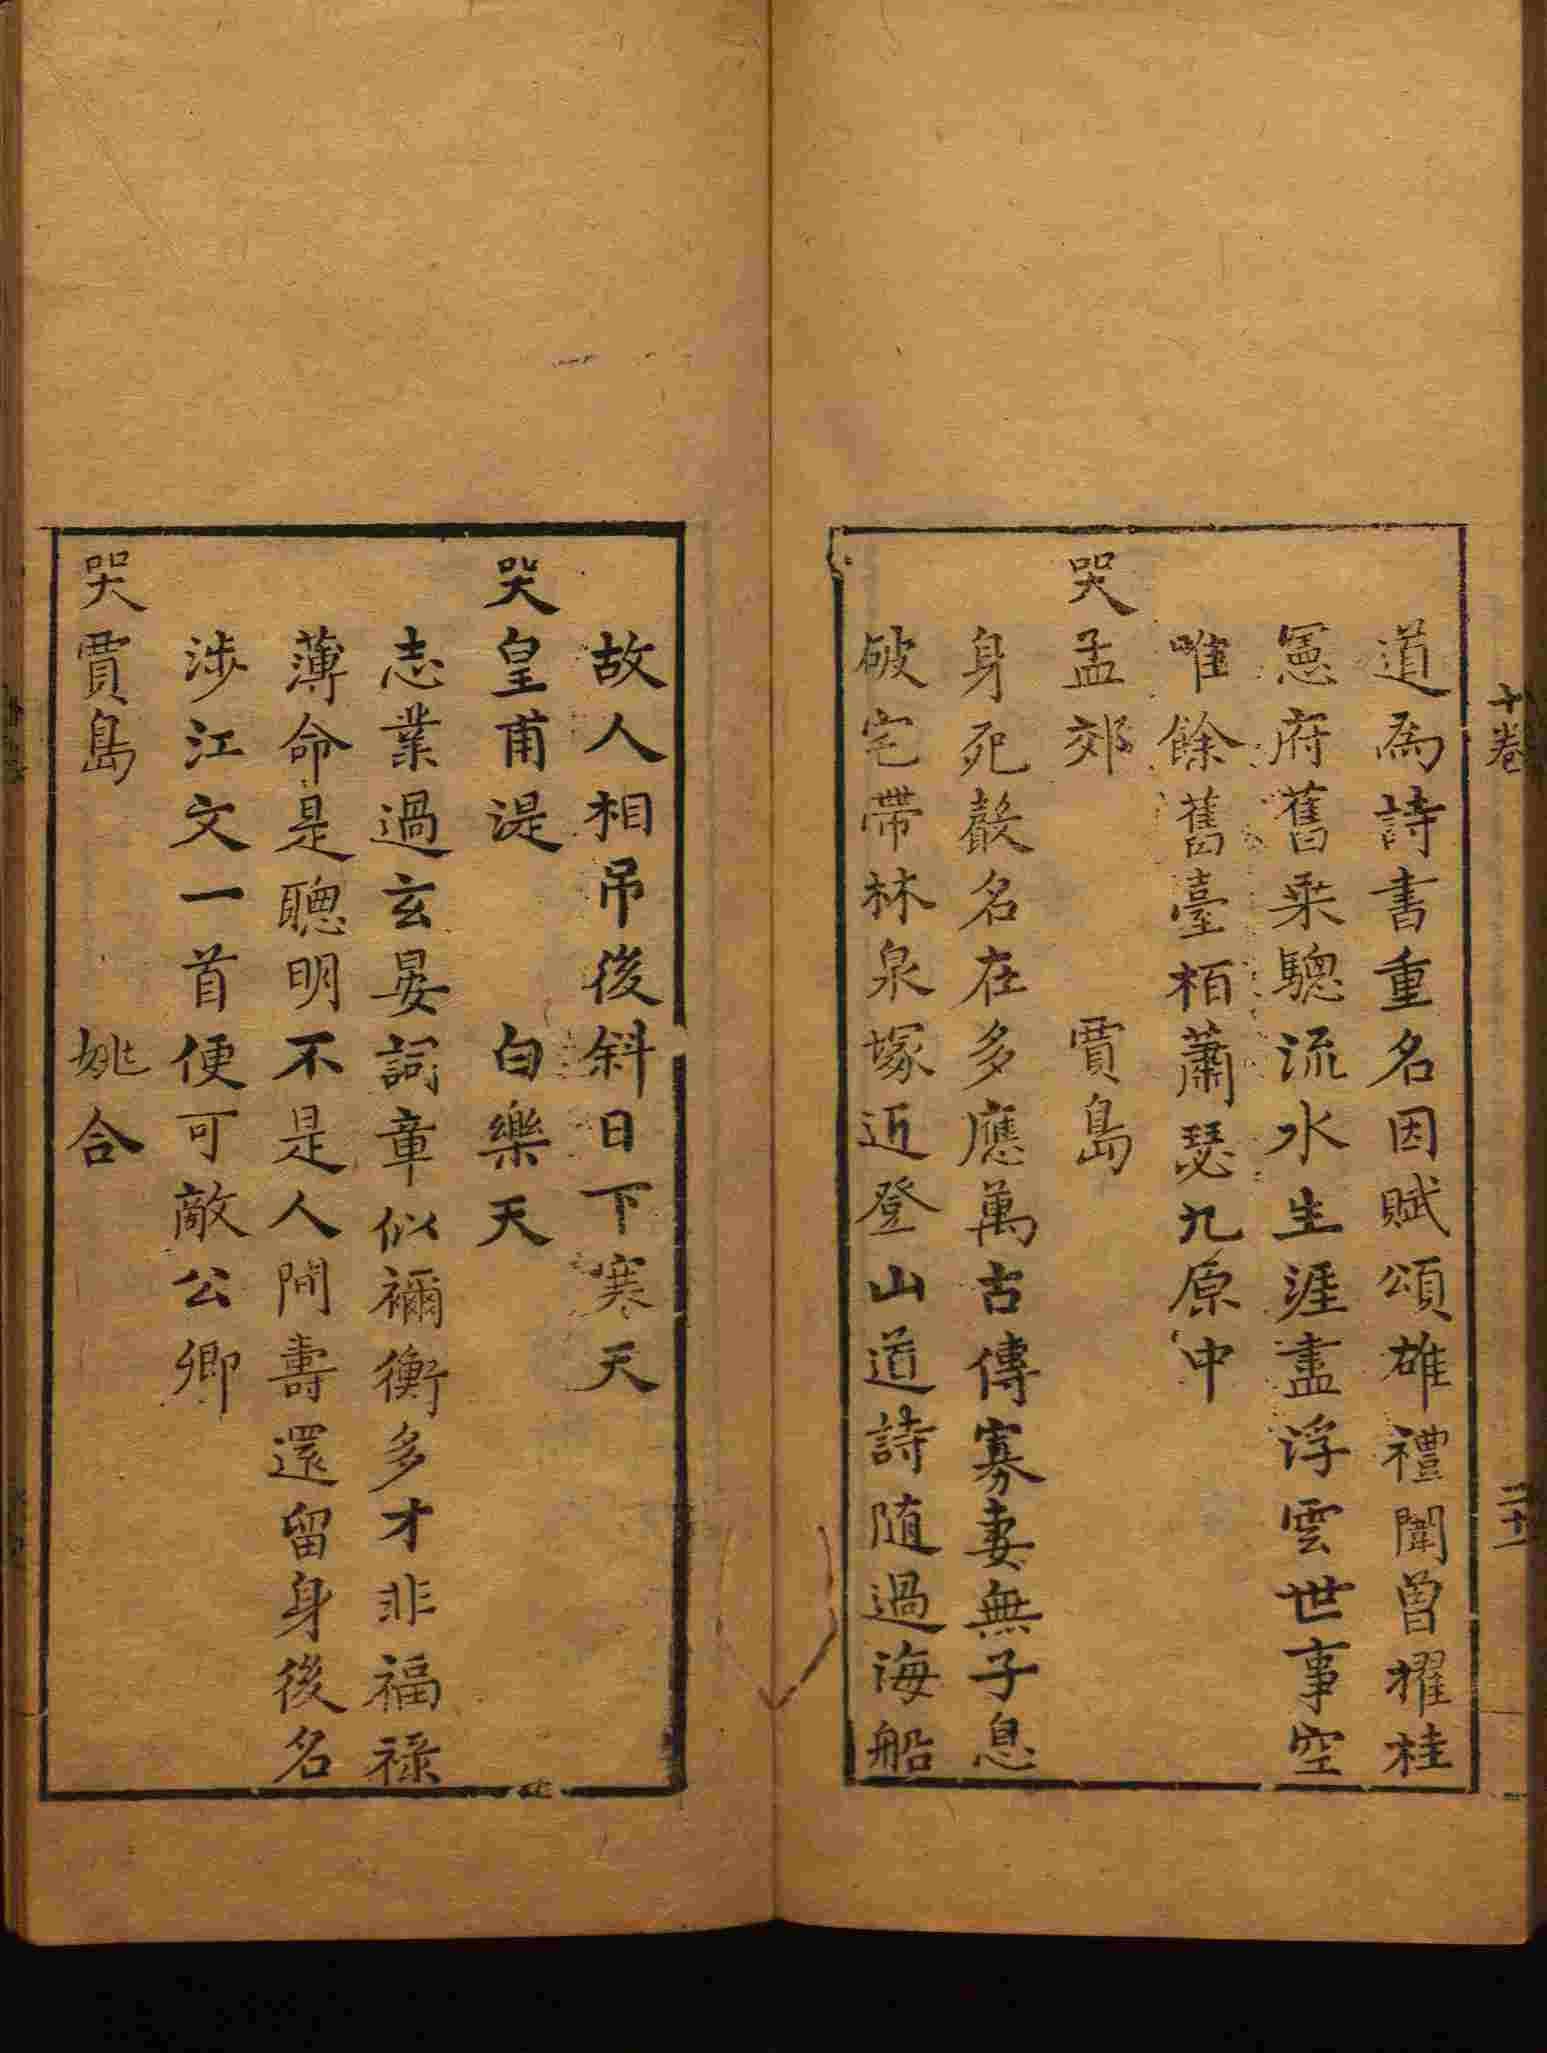 十卷
二十一
道為詩書重名因賦頌雄禮闈曾擢桂
憲府舊乘驄流水生涯盡浮雲世事空
唯餘舊臺栢蕭瑟九原中
哭孟郊 賈島
身死聲名在多應萬古傳寡妻無子息
破宅帶林泉塚近登山道詩隨過海船
故人相吊後斜日下寒天
哭皇甫湜 白樂天
志業過玄晏詞章似禰衡多才非福祿
薄命是聰明不是人間壽還留身後名
涉江文一首便可敵公卿
哭賈島 姚合